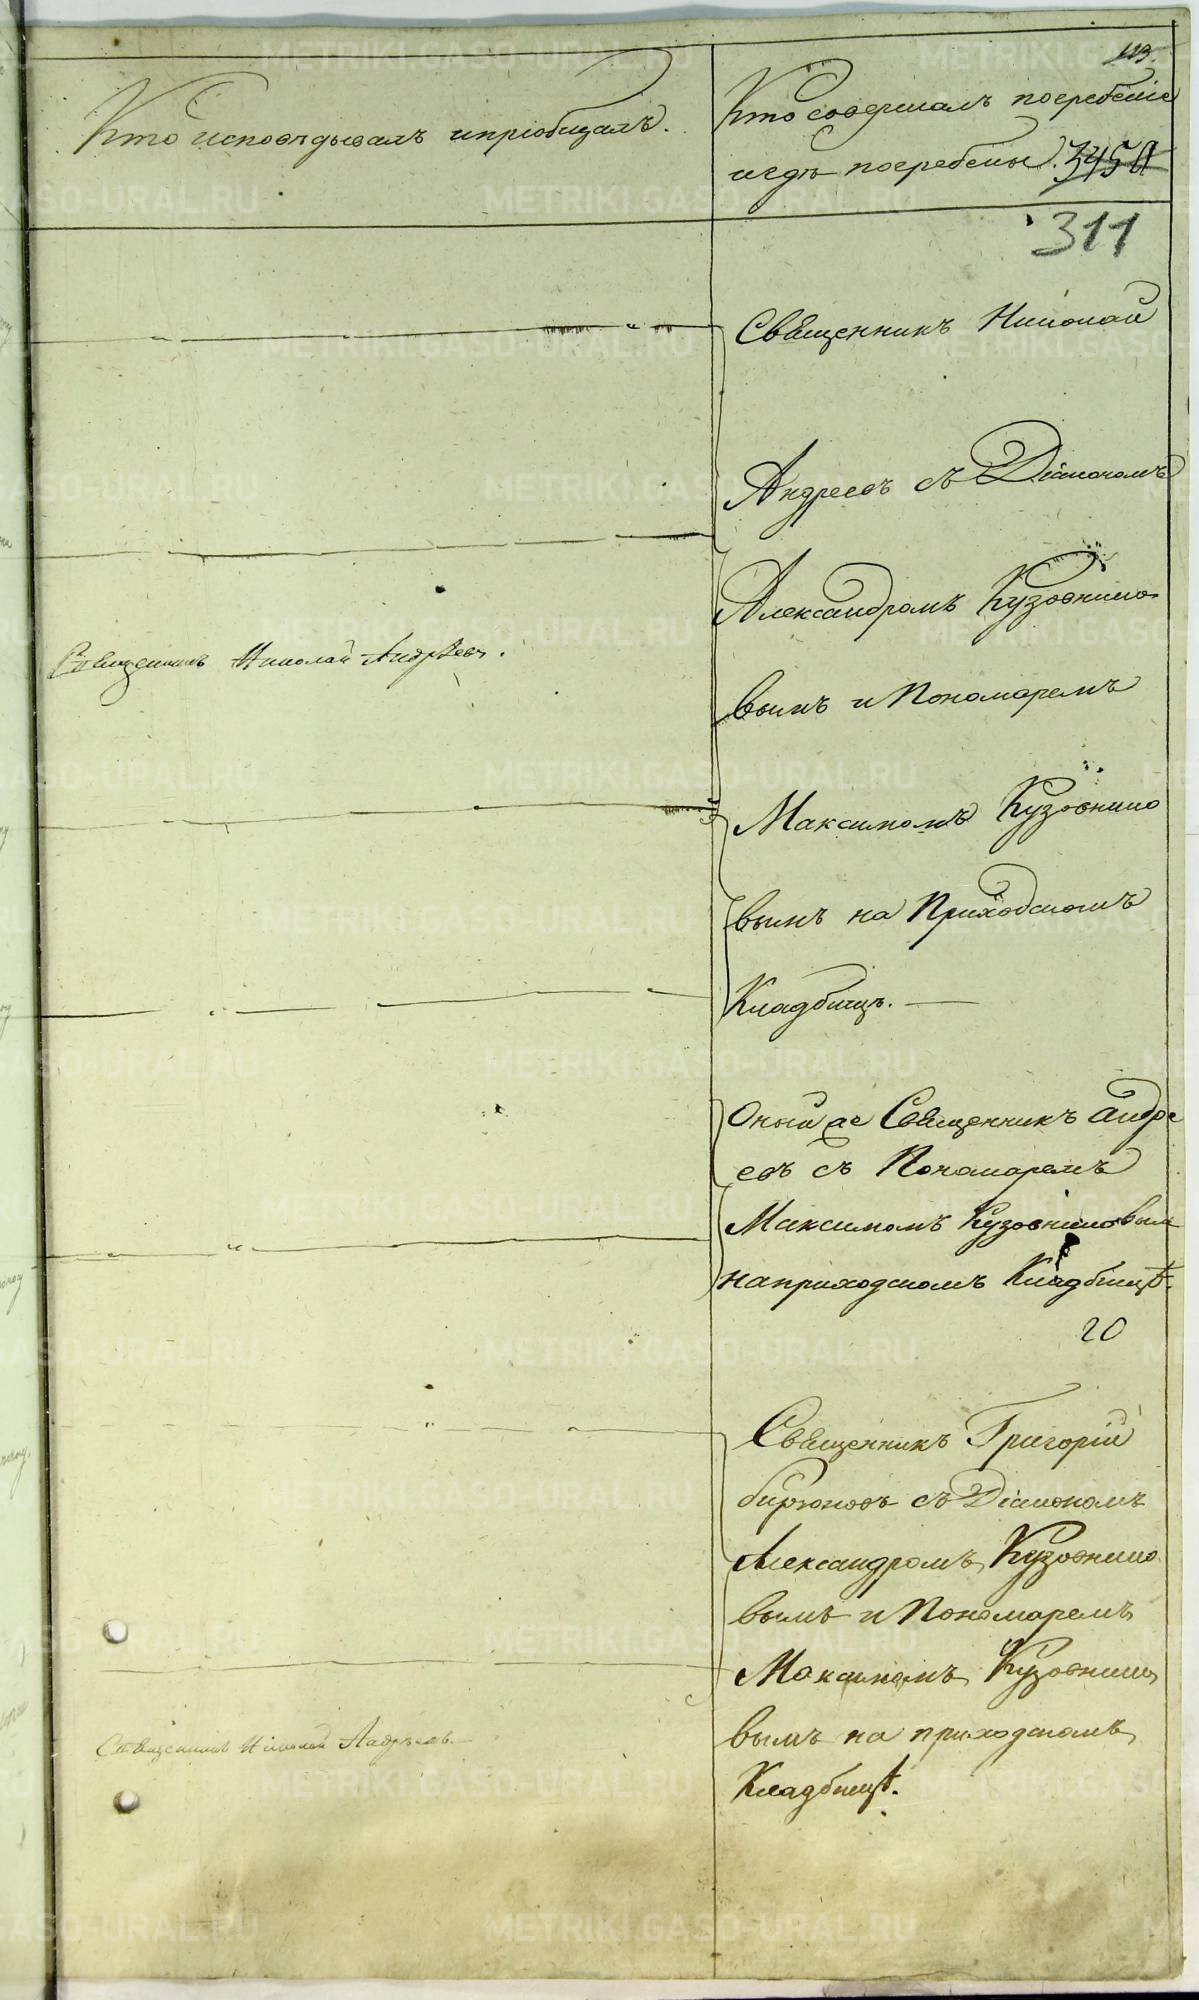 113.
Кто исповѣдывалъ и пріобщалъ.
Кто совершалъ погребеніе
и гдѣ погребены.
345
311
Священникъ Николай
Андреевъ съ Діакономъ
Александромъ Кузовнико
вымъ и Пономаремъ
Максимомъ Кузовнико
вымъ на Приходскомъ
Кладбищѣ.
Священникъ Николай Андрѣевъ.
Оный же Священникъ Андре
евъ съ Пономаремъ
Максимомъ Кузовниковым
на приходскомъ Кладбищѣ.
20
Священникъ Григорій
Бирюковъ съ Діакономъ
Александромъ Кузовнико
вымъ и Пономаремъ
Максимомъ Кузовнико
вымъ на приходскомъ
Кладбищѣ.
Священникъ Николай Андрѣевъ.
METRIKI.GASO-URAL.RU